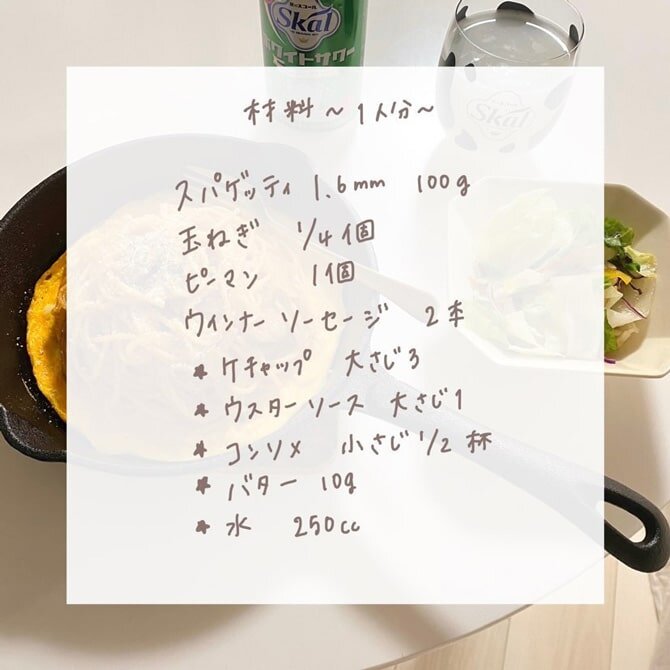 Skal
ホワイトサワー
Skal
材料~1人分~
スパゲッティ 1.6mm 100g
玉ねぎ 1/4個
ピーマン 1個
ウインナーソーセージ 2本
* ケチャップ 大さじ3
* ウスターソース 大さじ1
* コンソメ 小さじ1/2杯
* バター 10g
* 水 250cc